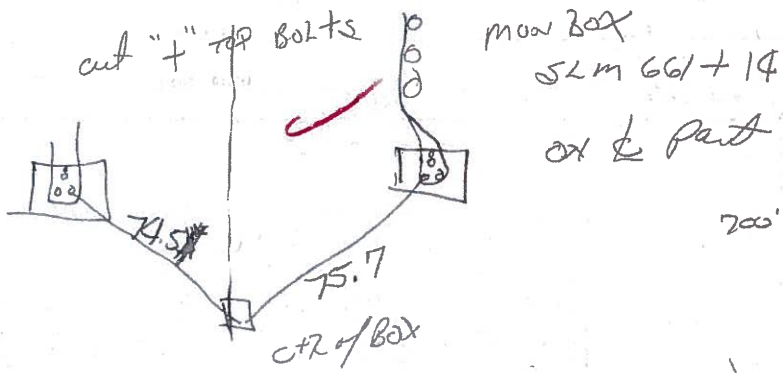 cut "+" TOP BOLTS
MON BOX
SLM 661+14
on ℄ Pavt
200'
74.5
75.7
ctr of BOX